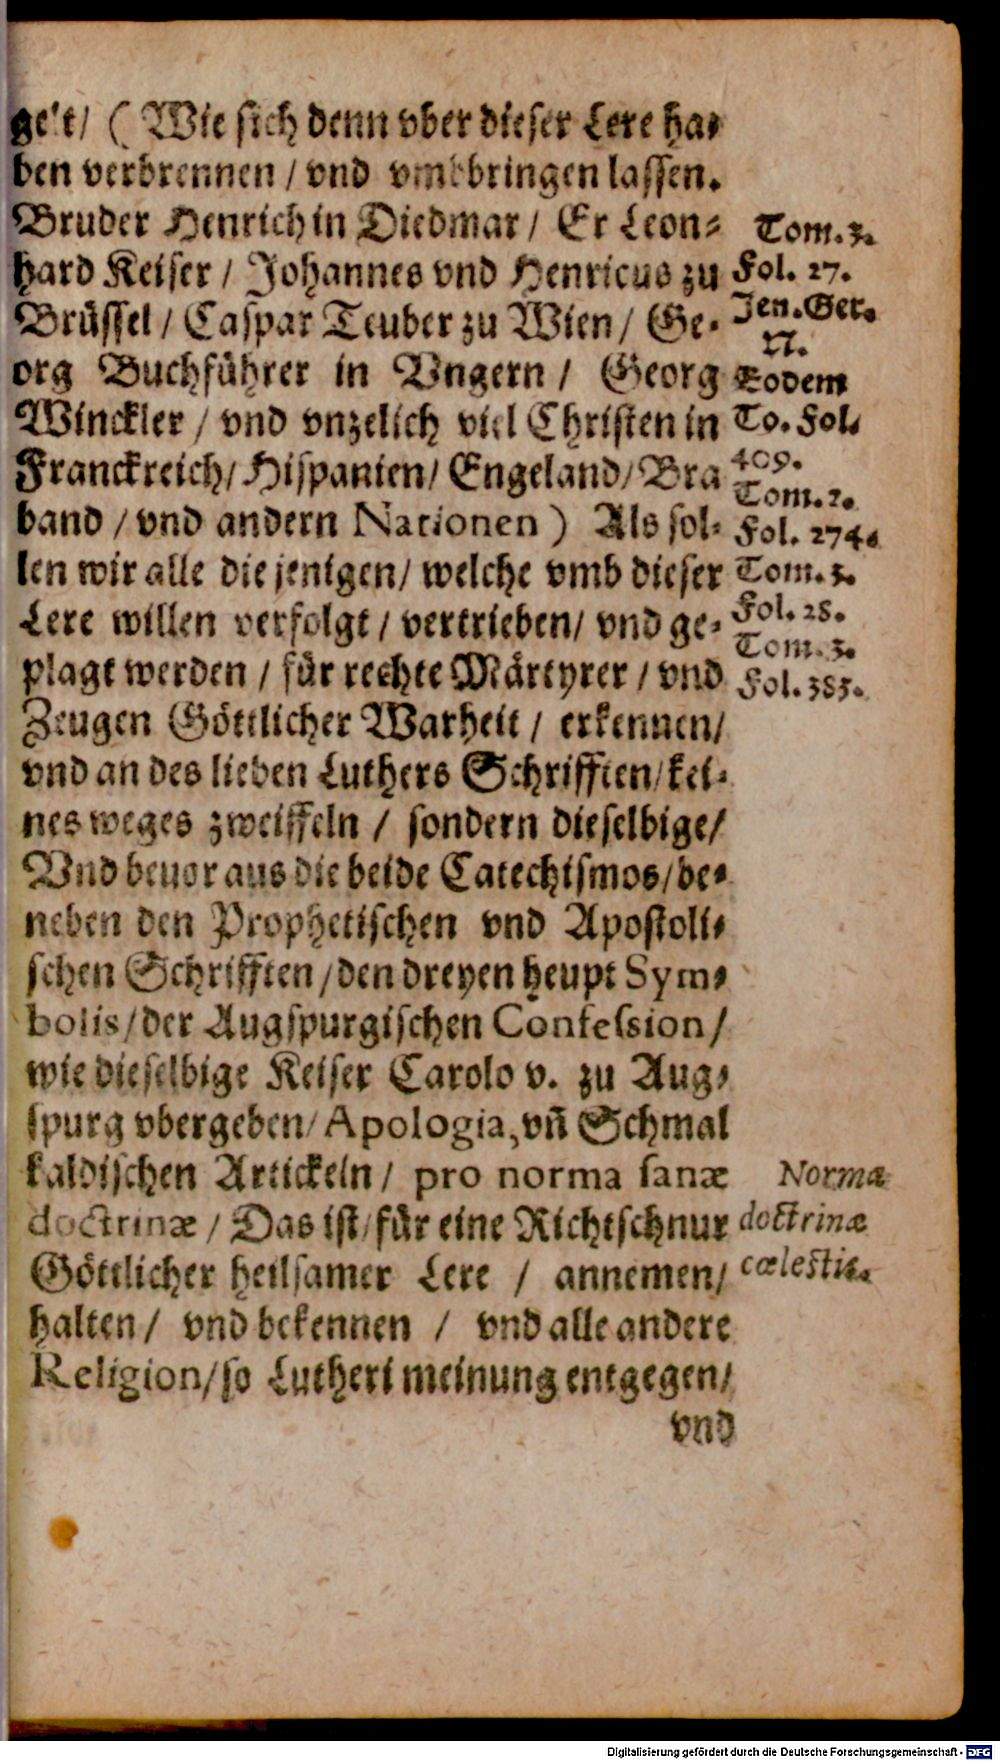 gelt/ (Wie sich denn vber dieser Lere ha-
ben verbrennen / vnd vmbbringen lassen.
Bruder Henrich in Diedmar / Er Leon-
hard Keiser / Johannes vnd Henricus zu
Brüssel / Caspar Teuber zu Wien / Ge-
org Buchführer in Vngern / Georg
Winckler / vnd vnzelich viel Christen in
Franckreich/ Hispanien/ Engeland/ Bra
band / vnd andern Nationen ) Als sol-
len wir alle die jenigen/ welche vmb dieser
Lere willen verfolgt / vertrieben/ vnd ge-
plagt werden / für rechte Märtyrer / vnd
Zeugen Göttlicher Warheit / erkennen/
vnd an des lieben Luthers Schrifften/ kei-
nes weges zweiffeln / sondern dieselbige/
Vnd beuor aus die beide Catechismos/ be-
neben den Prophetischen vnd Apostoli-
schen Schrifften / den dreyen heupt Sym-
bolis / der Augspurgischen Confession /
wie dieselbige Keiser Carolo v. zu Aug-
spurg vbergeben/ Apologia, vñ Schmal
kaldischen Artickeln / pro norma sanæ
doctrinæ / Das ist/ für eine Richtschnur
Göttlicher heilsamer Lere / annemen/
halten / vnd bekennen / vnd alle andere
Religion/ so Lutheri meinung entgegen/
vnd
Tom. 3.
Fol. 27.
Jen. Ger.
Eodem
To. Fol.
409.
Tom. 2.
Fol. 274.
Tom. 3.
Fol. 28.
Tom. 3.
Fol. 383.
Norma
doctrinæ
cælestis.
Digitalisierung gefördert durch die Deutsche Forschungsgemeinschaft - DFG